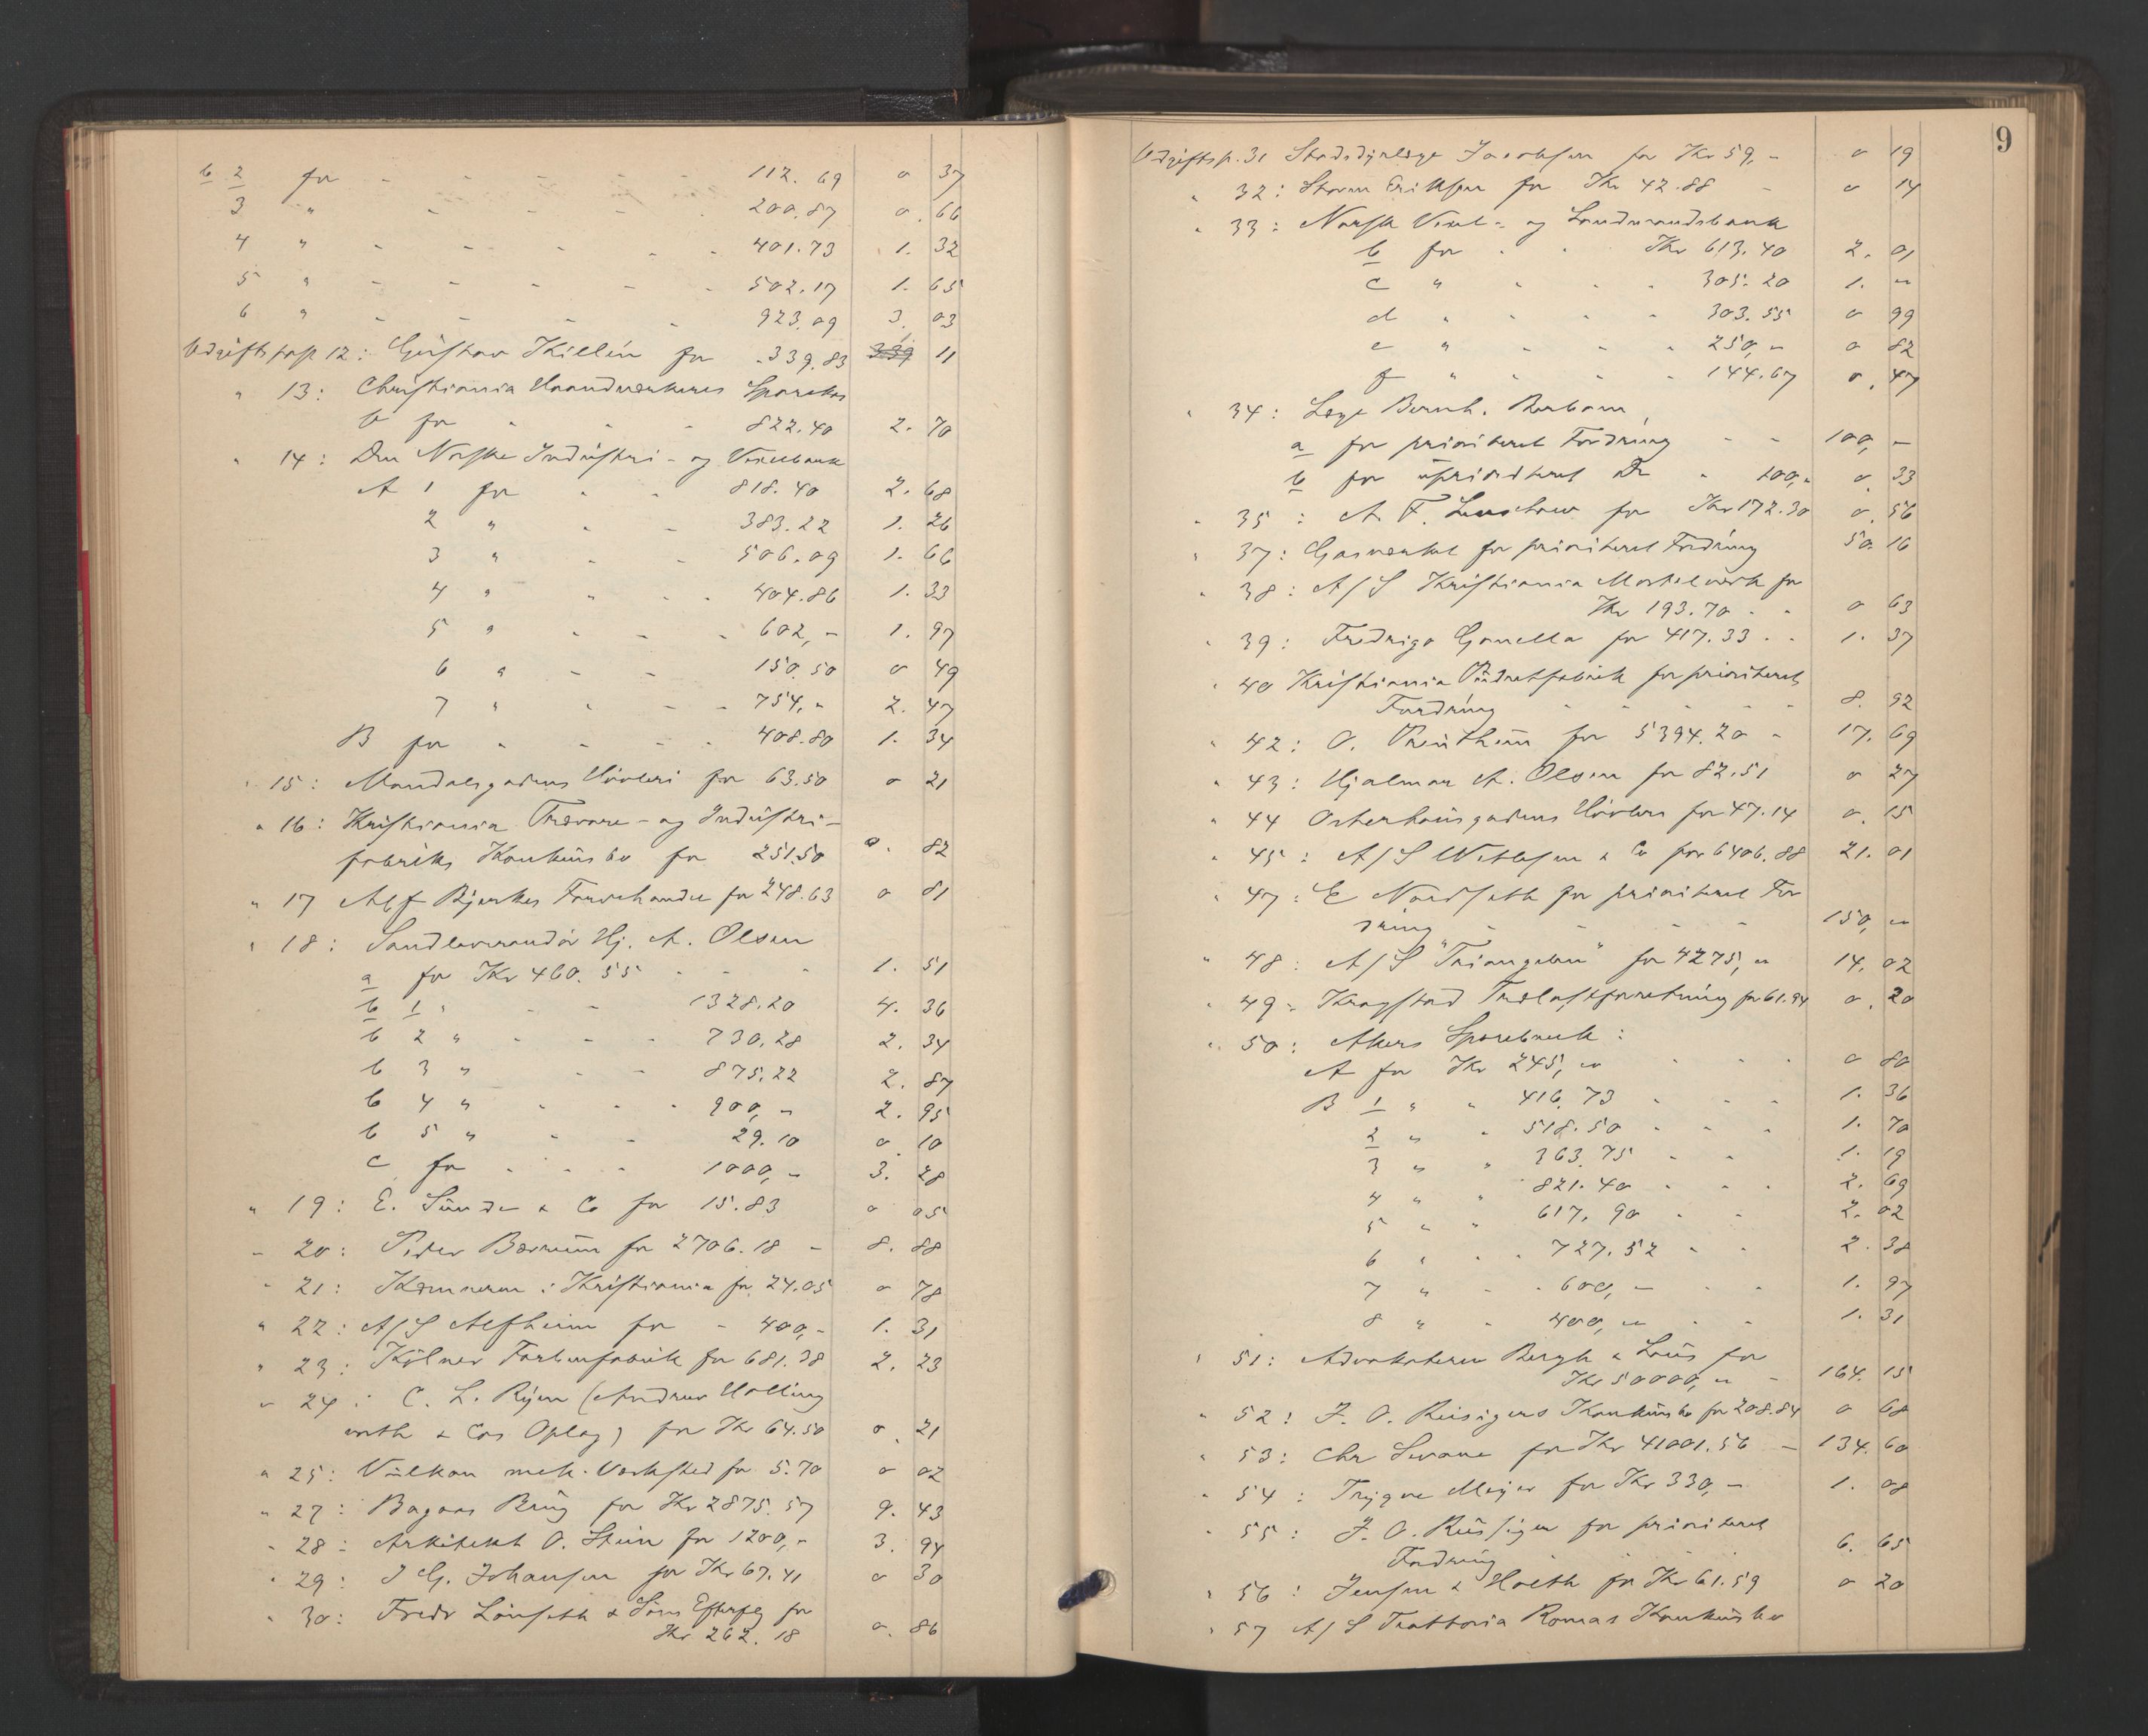 b 2 for - - - - - 112.69 0 37
3 " - - - - 200.87 0.66
4 " - - - - - 401.73 1.32
5 " - - - - - 502.17 1.65
6 " - - - - 923.09 3.03
Udgiftspost 12: Gustav Killén for 339.83 339 1 11
" 13: Christiania Haandverkeres Sparekas
b for - - - 822.40 2.70
" 14: Den Norske Industri- og Vexelbank
A 1 for - - 818.40 2.68
2 " - - 383.22 1.26
3 " - - 506.09 1.66
4 " - - - 404.86 1.33
5 " - - - 602,- 1.97
6 " - - 150.50 0 49
7 " - - - 754,- 2.47
B for - - - - 408.80 1.34
" 15: Mandalsgadens Høvleri for 63.50 0 21
" 16: Kristiania Trævare- og Industri-
fabriks Konkursbo for 251.50 0.82
" 17 Alf Bjerkes Farvehandel for 248.63 0 81
" 18: Sandleverandør Hj. A. Olsen
a for Kr 460.55 - - - 1.51
b 1 " - - 1328.20 4.36
b 2 " - - - 730.28 2.34
b 3 " - - 875.22 2.87
b 4 " - - - 900,- 2.95
b 5 " - - 29.10 0 10
c for - - - 1000,- 3.28
" 19: E. Sunde & Co for 15.83 0 05
" 20: Peder Bærum for 2706.18 - 8.88
" 21: Kæmneren i Kristiania for 24.05 0 78
" 22: A/S Alfheim for - 400,- 1.31
" 23: Kölner Farbenfabrik for 681.38 2.23
" 24: C. L. Ryen (Andrew Holling
worth & Cos Oplag) for Kr 64.50 0.21
" 25: Vulkan mek. Verksted for 5.70 0 02
" 27: Bagaas Brug for Kr 2875.57 9.43
" 28: Arkitekt O. Stein for 1200,- 3.94
" 29: J G. Johansen for Kr 67.41 0 30
" 30: Fredr Lønseth & Søns Efterflg for
Kr 262.18 0.86
9
Udgiftsp. 31 Stadsdyrlæge Jacobsen for Kr 59,- 0 19
" 32: Storm Eriksen for Kr 42.88 - 0 14
" 33: Norsk Vexel- og Landmandsbank
b for - - Kr 613.40 2.01
c " - - - 305.20 1. "
d " - - - 303.55 0 99
e " - - - 250,- 0 82
f " - - - 144.67 0.47
" 34: Læge Bernh.
a for prioritert Fordring - - 100,-
b for uprioritert Do - 100,- 0.33
" 35: A. F. for Kr 172.30 0.56
" 37: Gasverket for prioritert Fordring 50.16
" 38: A/S Kristiania Mørtelverk for
Kr 193.70 - - 0 63
" 39: Fredrigo Gianella for 417.33 - - 1.37
" 40 Kristiania Pudretfabrik for prioritert
Fordring - - - - - 8.92
" 42: O. for 5394.20 - 17.69
" 43: Hjalmar A. Olsen for 82.51 0 27
" 44 Osterhausgadens Høvleri for 47.14 0.15
" 45: A/S & Co for 6406.88 21.01
" 47: E Nordseth for prioritert For
dring - - - - 150,-
" 48: A/S "Triangelen" for 4275,- 14.02
" 49: Kragstad Trælastforretning for 61.94 0.20
" 50: Akers Sparebank:
A for Kr 245,- - - - 0 80
B 1 " " 416.73 - - - 1.36
2 " " 518.50 - - - 1.70
3 " " 363.75 - - 1.19
4 " " 821.40 - - - 2.69
5 " " 617.90 - - 2.02
6 " " 727.52 - - 2.38
7 " - - 600,- - - 1.97
8 " " 400,- - - 1.31
" 51: Advokaterne Bergh & Lous for
Kr 50000,- - 164.15
" 52: J. O. Reisigers Konkursbo for 208.84 0 68
" 53: Chr Svane for Kr 41001.56 - 134.60
" 54: Trygve Meyer for Kr 330,- 1.08
" 55: J. O. for prioritert
Fordring - - - 6.65
" 56: Jensen & Holth for Kr 61.59 0 20
" 57 A/S Trattoria Romas Konkursbo